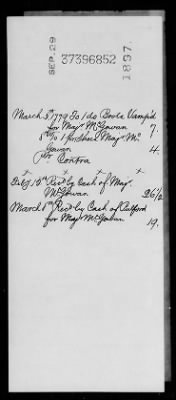 SEP. 29
37396852
1897.
March 5th 1779 To 1 do Boots Vampd
for Majr. McGowan 7.
8th To 1 pr Shoes Majr Mc
Gowan 4.
pr Contra
Feby 15th Recd by Cash of Majr.
McGowan 26/2
March 8th Recd by Cash of
for Majr McGowan 19.